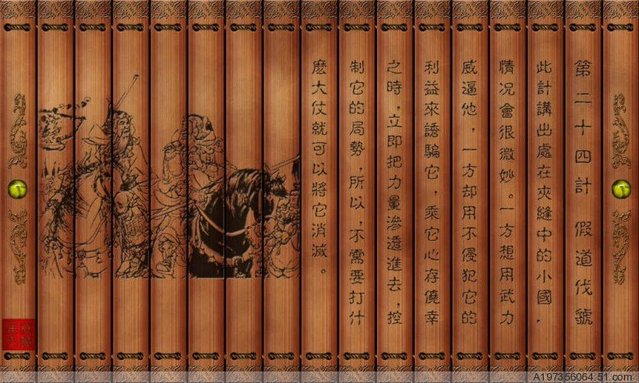 第二十四計 假道伐虢
此計講出處在夾縫中的小國，
情况會很微妙。一方想用武力
威逼他，一方却用不侵犯它的
利益來誘騙它，乘它心存僥幸
之時，立即把力量滲透進去，控
制它的局勢，所以，不需要打什
麽大仗就可以將它消滅。
A197356064.51.com